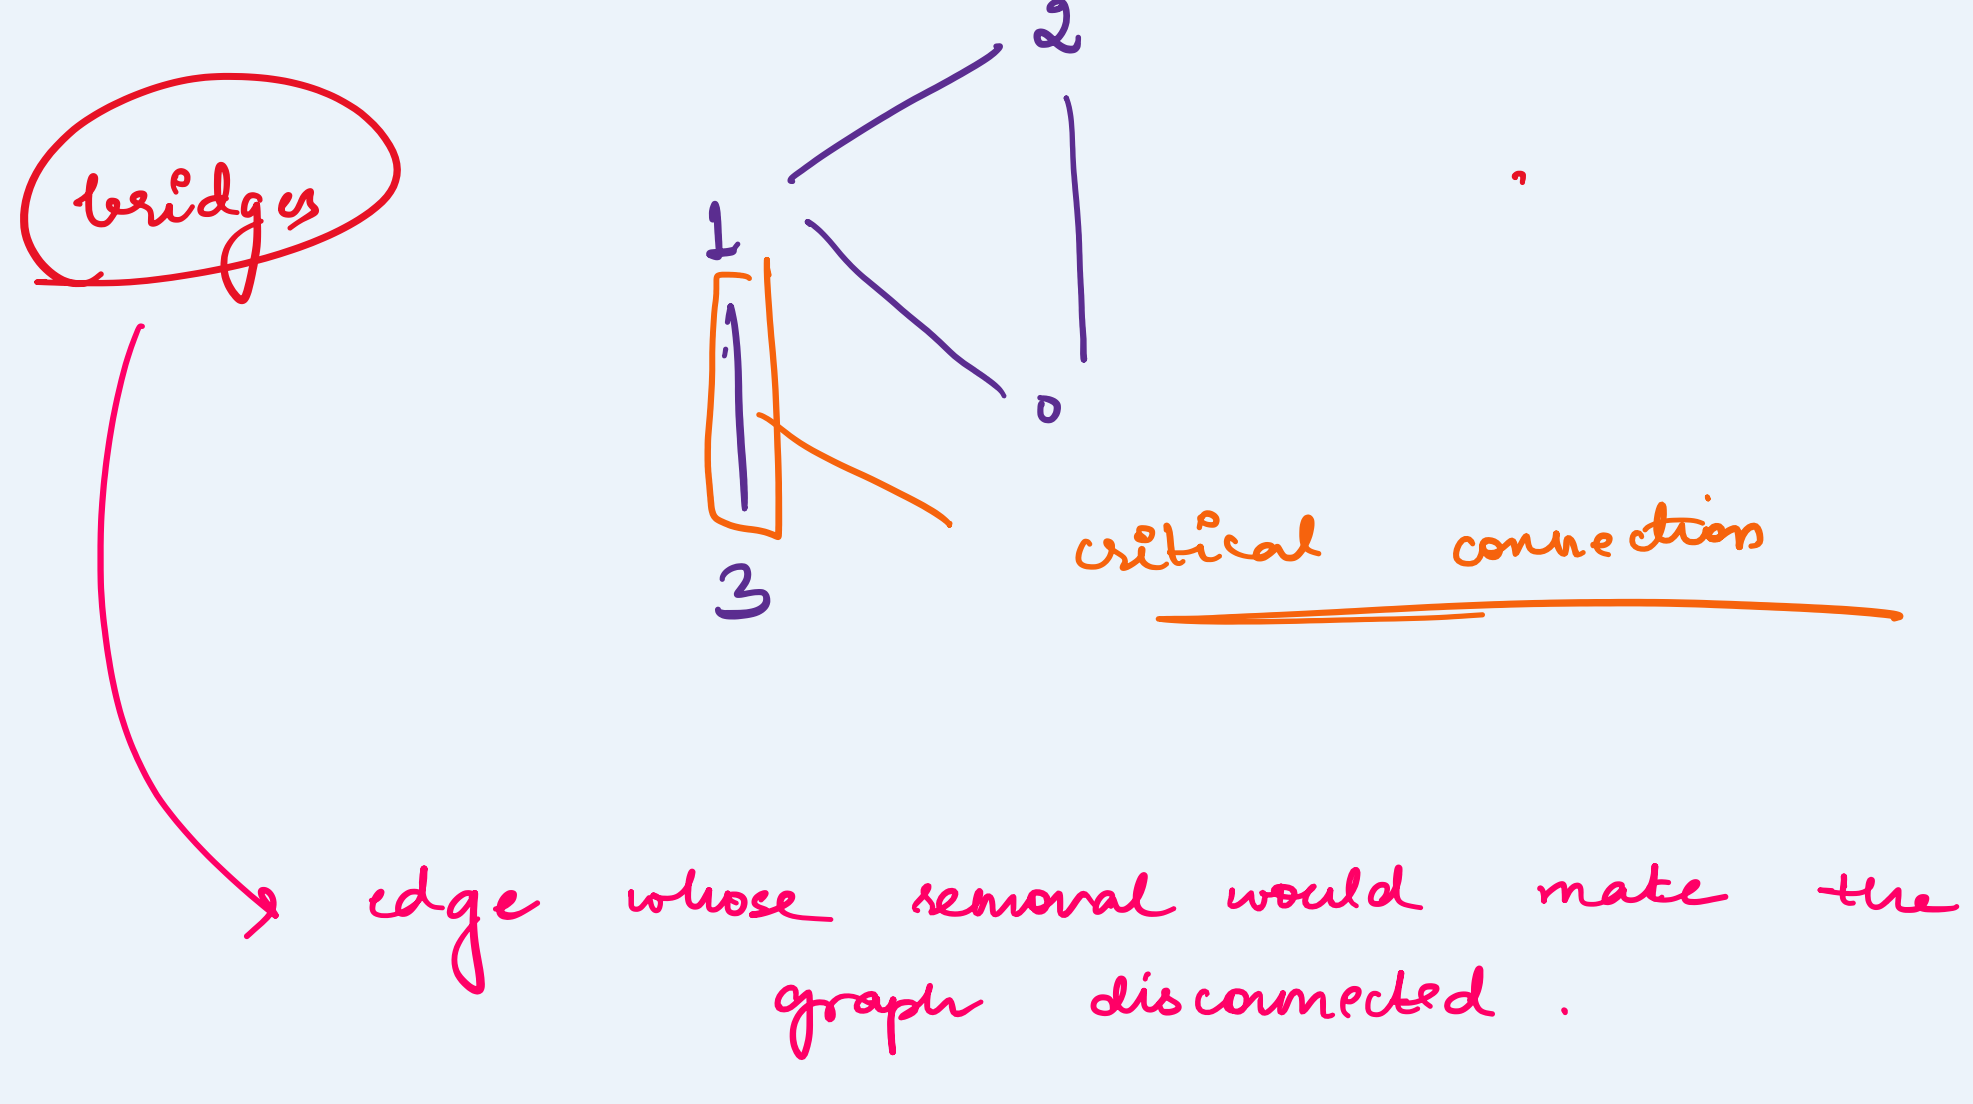 2
bridges
1
0
critical connection
3
edge whose removal would make the
graph disconnected.